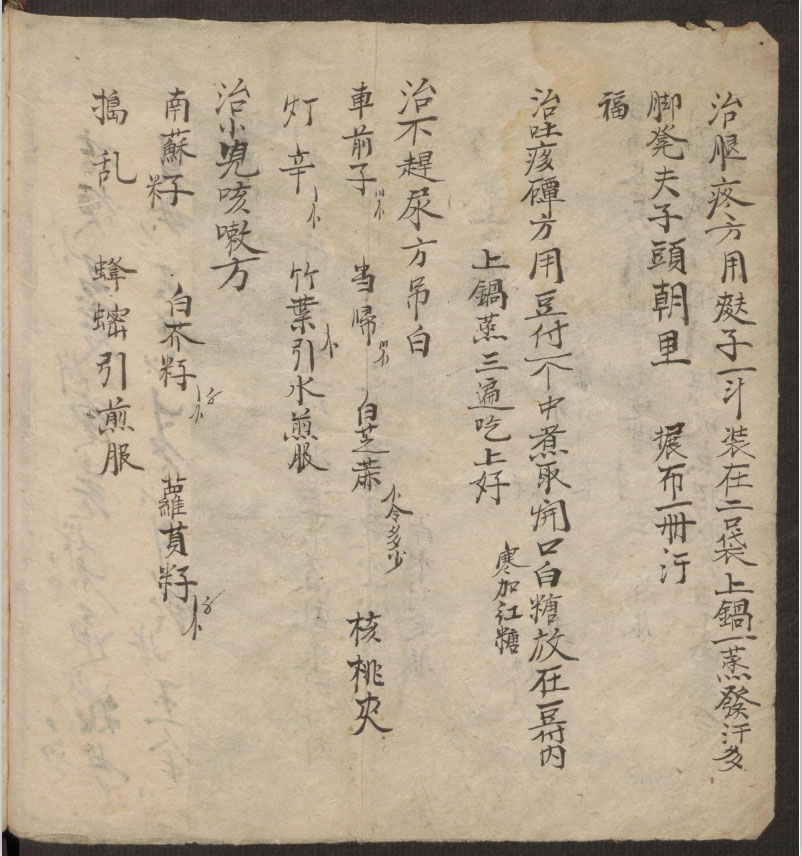 治腿疼方用麸子一斗装在二口袋上鍋一蒸發汗多
脚凳夫子頭朝里 㨰布一冊汗
福
治吐痰礓方用豆付一个中煮取開口白糖放在豆付内
上鍋蒸三遍吃上好 寒加红糖
治不趕尿方吊白
車前子 当歸 白芝蔴 不令多少 核桃夹
灯辛 竹葉引水煎服
治小児咳嗽方
南蘇籽 白芥籽 蘿蔔籽
搗乱 蜂蜜引煎服